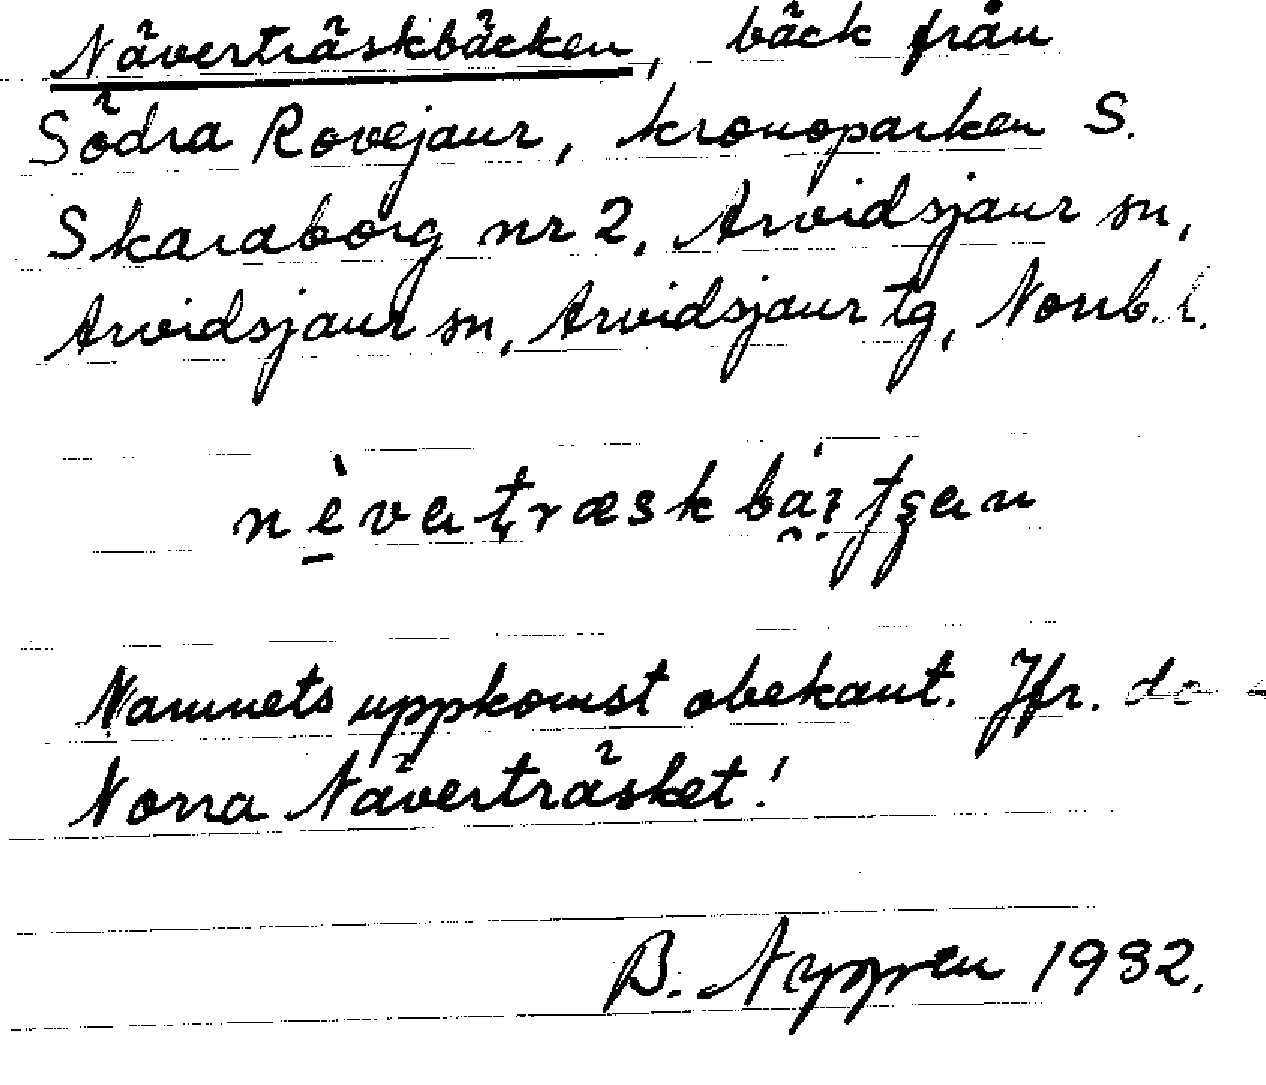 Näverträskbäcken, bäck från
Södra Rovejaur, kronoparken S.
Skaraborg nr 2, Arvidsjaur sn,
Arvidsjaur sn, Arvidsjaur tg, Norrb. l.
Namnets uppkomst obekant. Jfr.
Norra Näverträsket!
B. Nygren 1932.